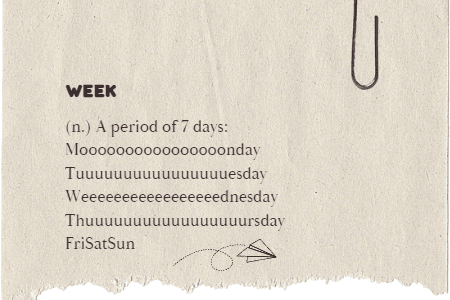 WEEK
(n.) A period of 7 days:
Moooooooooooooooonday
Tuuuuuuuuuuuuuuuuesday
Weeeeeeeeeeeeeeeednesday
Thuuuuuuuuuuuuuuuuursday
FriSatSun